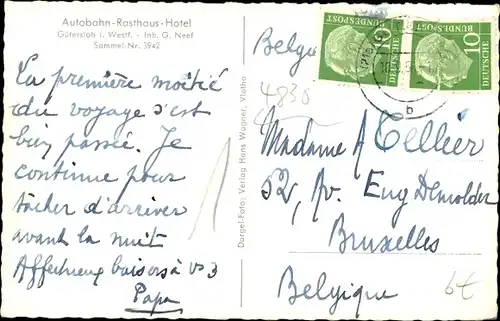 Autobahn-Rasthaus-Hotel
Gütersloh i. Westf. - Inh. G. Neef
Sammel-Nr. 3942
La première moitié
du voyage s'est
bien passée. Je
continue pour
tâcher d'arriver
avant la nuit
Affectueux baisers à vs 3
Papa
Dargel-Foto: Verlag Hans Wagner, Vlotho
DEUTSCHE BUNDESPOST
10
DEUTSCHE BUNDESPOST
10
b
4838
Madame A Tellier
52, Av. Eug Demolder
Bruxelles
Belgique
6t